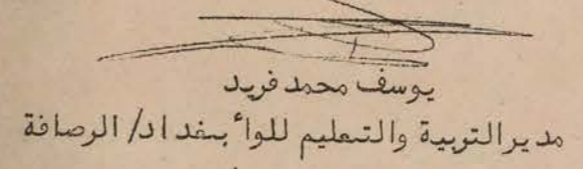 يوسف محمد فريد
مدير التربية والتعليم للواأ بغداد/ الرصافة